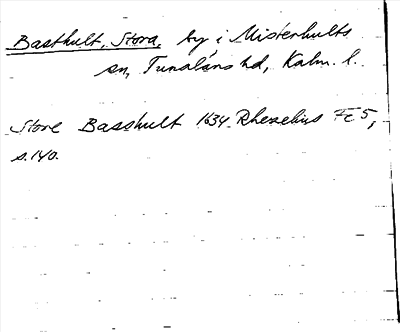 Basthult, Stora, by i Misterhults
sn, Tunaläns hd, Kalm. l.
Store Basshult 1634. Rhezelius Fc 5,
s. 140.